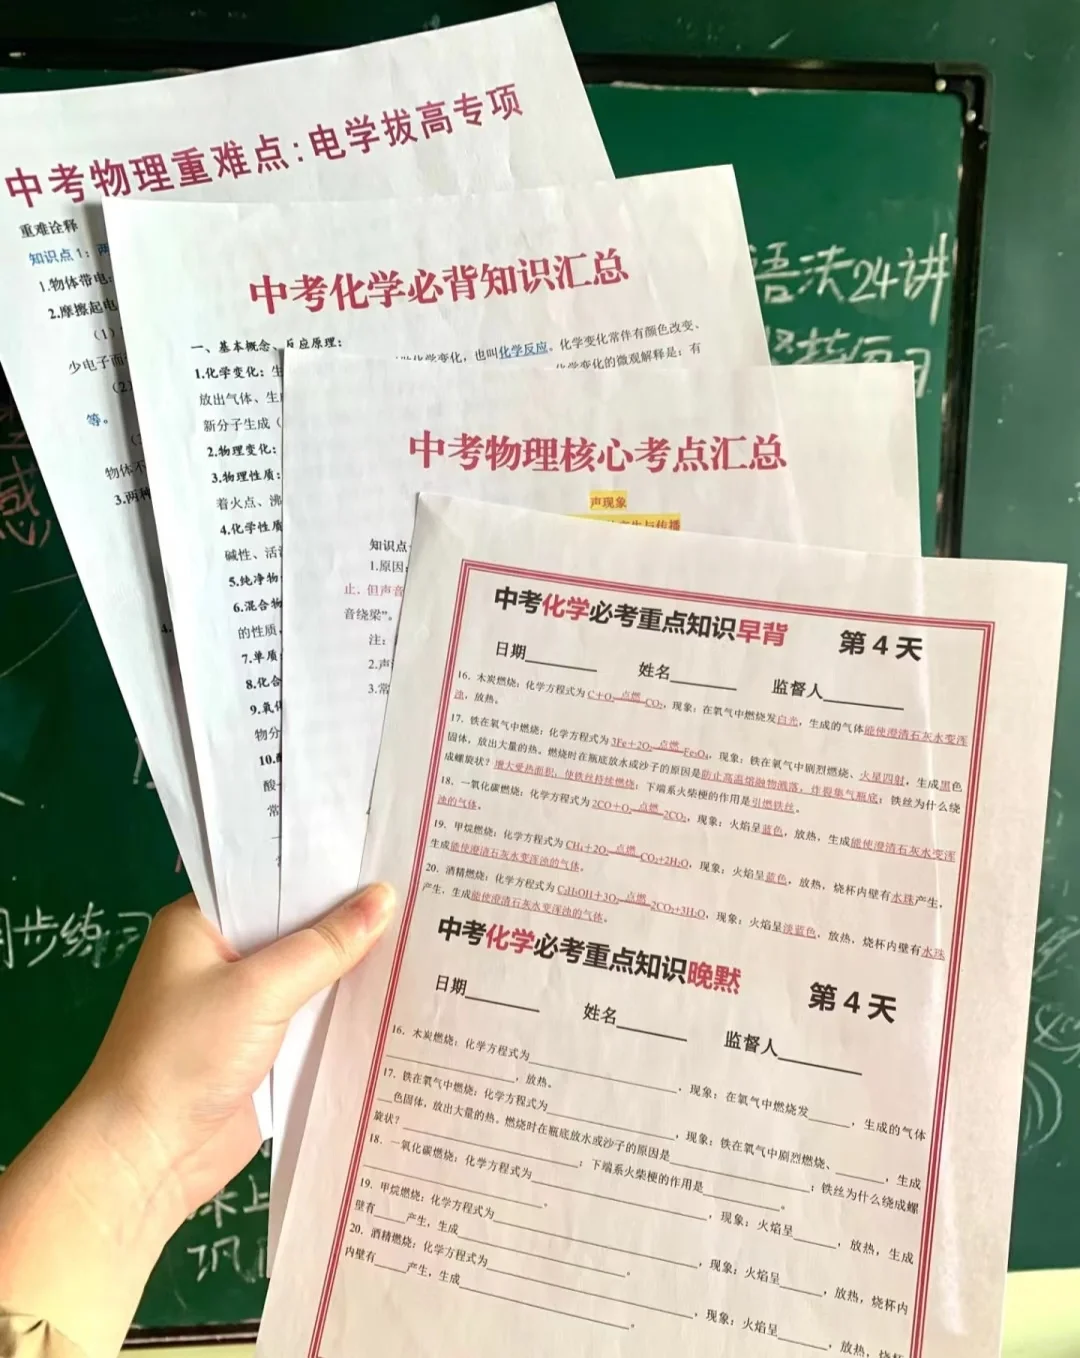 中考物理重难点:电学拔高专项
重难诠释
知识点1：两
1.物体带电:
2.摩擦起电
（1）
少电子而
（2）
等。
物体不
3.两种
4.
中考化学必背知识汇总
一、基本概念、反应原理：
1.化学变化：生
化学变化，也叫化学反应。化学变化常伴有颜色改变、
放出气体、生
化学变化的微观解释是：有
新分子生成（
2.物理变化：
3.物理性质：
着火点、沸
4.化学性质
碱性、活
5.纯净物
6.混合物
的性质，
7.单质
8.化合
9.氧化
物分
10.
酸
常
中考物理核心考点汇总
声现象
产生与传播
知识点
1.原因
止，但声音
音绕梁”。
注：
2.声
3.常
中考化学必考重点知识早背 第4天
日期 姓名 监督人
16．木炭燃烧：化学方程式为C＋O₂ 点燃 CO₂，现象：在氧气中燃烧发白光，生成的气体能使澄清石灰水变浑
浊，放热。
17．铁在氧气中燃烧：化学方程式为3Fe＋2O₂ 点燃 Fe₃O₄，现象：铁在氧气中剧烈燃烧、火星四射，生成黑色
固体，放出大量的热。燃烧时在瓶底放水或沙子的原因是防止高温熔融物溅落，炸裂集气瓶底；铁丝为什么绕
成螺旋状？增大受热面积，使铁丝持续燃烧；下端系火柴梗的作用是引燃铁丝。
18．一氧化碳燃烧：化学方程式为2CO＋O₂ 点燃 2CO₂，现象：火焰呈蓝色，放热，生成能使澄清石灰水变浑
浊的气体。
19．甲烷燃烧：化学方程式为CH₄＋2O₂ 点燃 CO₂+2H₂O，现象：火焰呈蓝色，放热，烧杯内壁有水珠产生，
生成能使澄清石灰水变浑浊的气体。
20．酒精燃烧：化学方程式为C₂H₅OH＋3O₂ 点燃 2CO₂+3H₂O，现象：火焰呈淡蓝色、放热，烧杯内壁有水珠
产生，生成能使澄清石灰水变浑浊的气体。
中考化学必考重点知识晚默 第4天
日期 姓名 监督人
16．木炭燃烧：化学方程式为 ，现象：在氧气中燃烧发 ，生成的气体
，放热。
17．铁在氧气中燃烧：化学方程式为 ，现象：铁在氧气中剧烈燃烧、 ，生成
色固体，放出大量的热。燃烧时在瓶底放水或沙子的原因是 ；铁丝为什么绕成螺
旋状？ ；下端系火柴梗的作用是 。
18．一氧化碳燃烧：化学方程式为 ，现象：火焰呈 ，放热，生成
。
19．甲烷燃烧：化学方程式为 ，现象：火焰呈 ，放热，烧杯内
壁有 产生，生成 。
20．酒精燃烧：化学方程式为 ，现象：火焰呈 ，放热，烧杯
内壁有 产生，生成 。
语法24讲
每日
感
同步练习